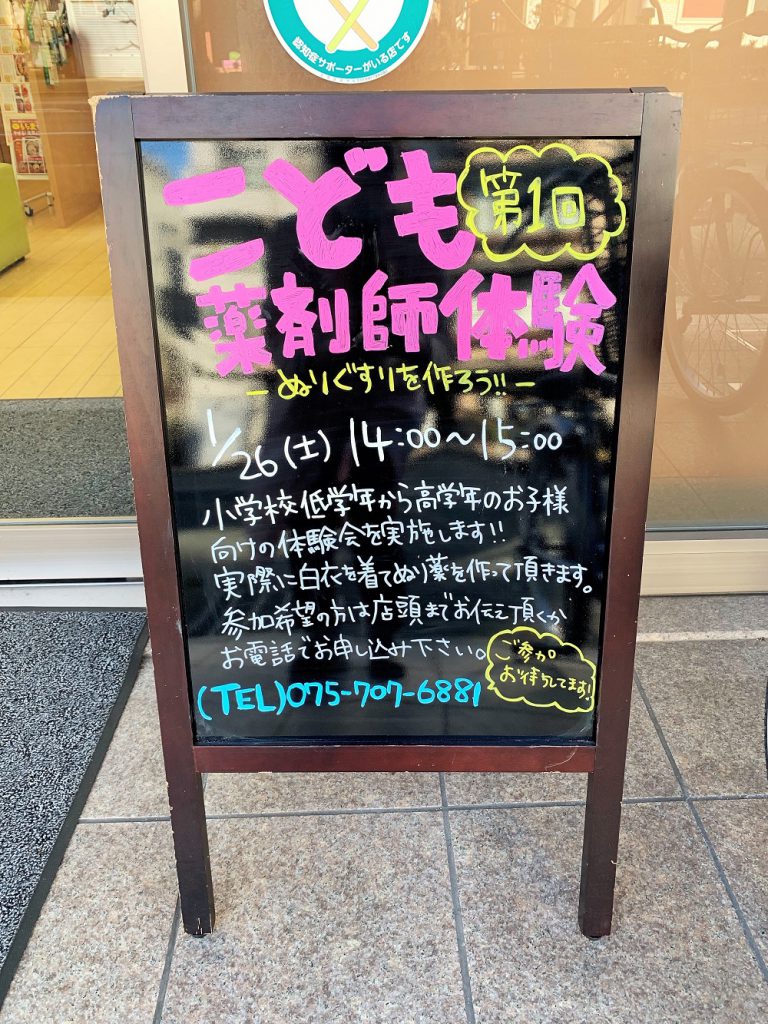 認知症サポーターがいる店です
こども
第1回
薬剤師体験
－ぬりぐすりを作ろう!!－
1/26(土) 14:00～15:00
小学校低学年から高学年のお子様
向けの体験会を実施します!!
実際に白衣を着てぬり薬を作って頂きます。
参加希望の方は店頭までお伝え頂くか
お電話でお申し込み下さい。
ご参加
お待ちしてます!
(TEL)075-707-6881